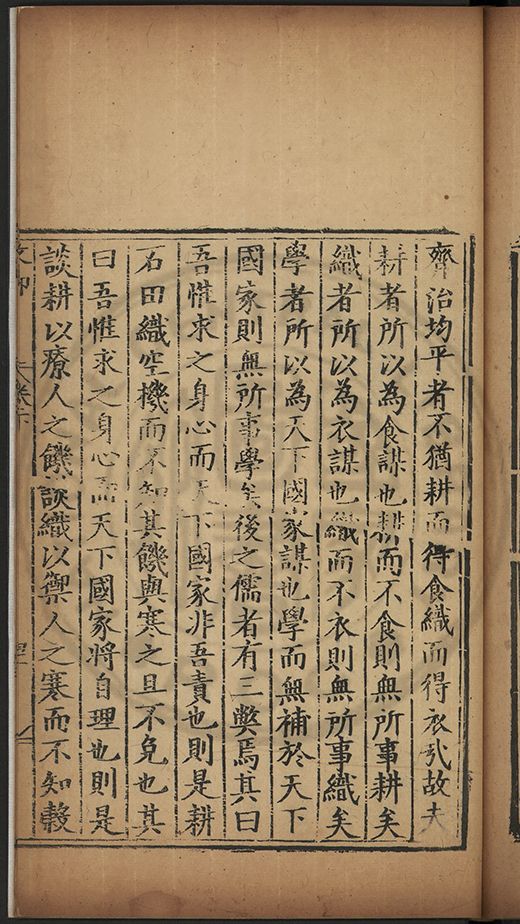 齊治均平者不猶耕而得食織而得衣㢤故夫
耕者所以為食謀也耕而不食則無所事耕矣
織者所以為衣謀也織而不衣則無所事織矣
學者所以為天下國家謀也學而無補於天下
國家則無所事學矣後之儒者有三弊焉其曰
吾惟求之身心而天下國家非吾責也則是耕
石田織空機而不知其饑與寒之且不免也其
曰吾惟求之身心而天下國家將自理也則是
談耕以療人之饑談織以禦人之寒而不知榖